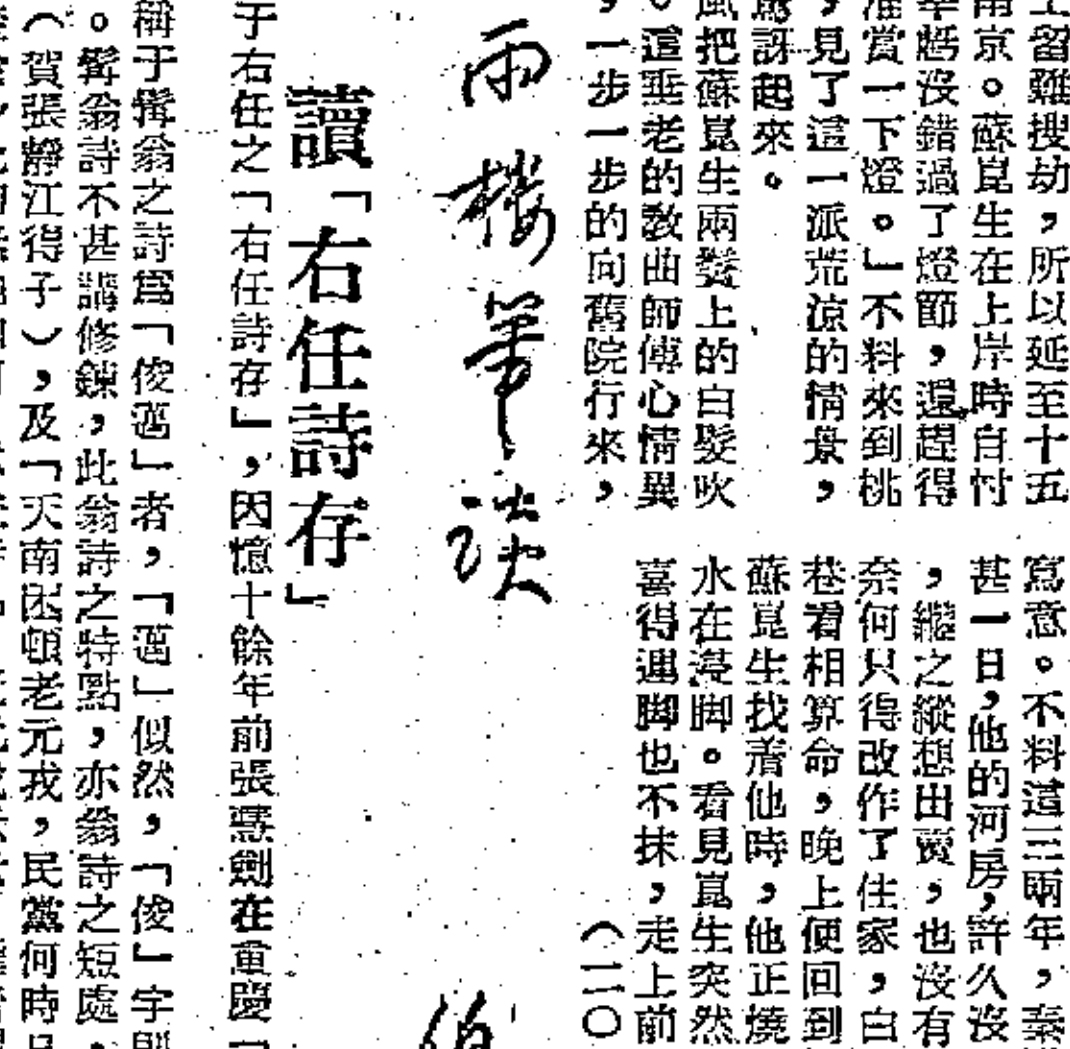 留難搜劫，所以延至十五
南京。蘇崑生在上岸時自忖
沒錯過了燈節，還趕得
賞一下燈。」不料來到桃
，見了這一派荒涼的情景，
驚訝起來。
風把蘇崑生兩鬢上的白髮吹
。這垂老的教曲師傅心情異
，一步一步的向舊院行來，
寫意。不料這三兩年，秦
甚一日，他的河房，許久沒
，繼之縱想出賣，也沒有
奈何只得改作了住家，白
巷看相算命，晚上便回到
蘇崑生找着他時，他正燒
水在浸脚。看見崑生突然
喜得連脚也不抹，走上前
（二〇
雨樓筆談
讀「右任詩存」
于右任之「右任詩存」，因憶十餘年前張慧劍在重慶「
稱于髯翁之詩爲「俊邁」者，「邁」似然，「俊」字
。髯翁詩不甚講修鍊，此翁詩之特點，亦翁詩之短處。
（賀張靜江得子），及「天南困頓老元戎，民黨何時